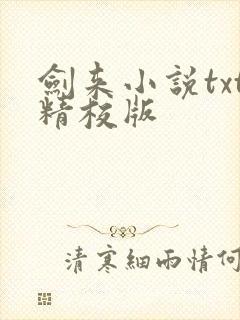 劍来小説txt
精校版
清寒細雨情何